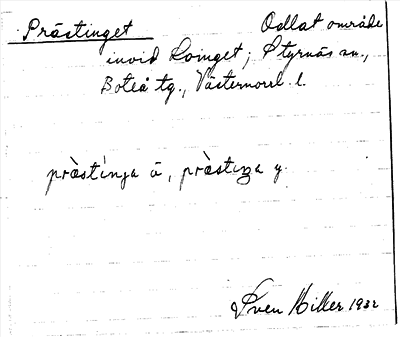 Prästinget Odlat område
invid Loinget; Styrnäs sn.,
Boteå tg., Västernorrl. l.
prästinja ä, prästiŋa y.
Sven Hiller 1932